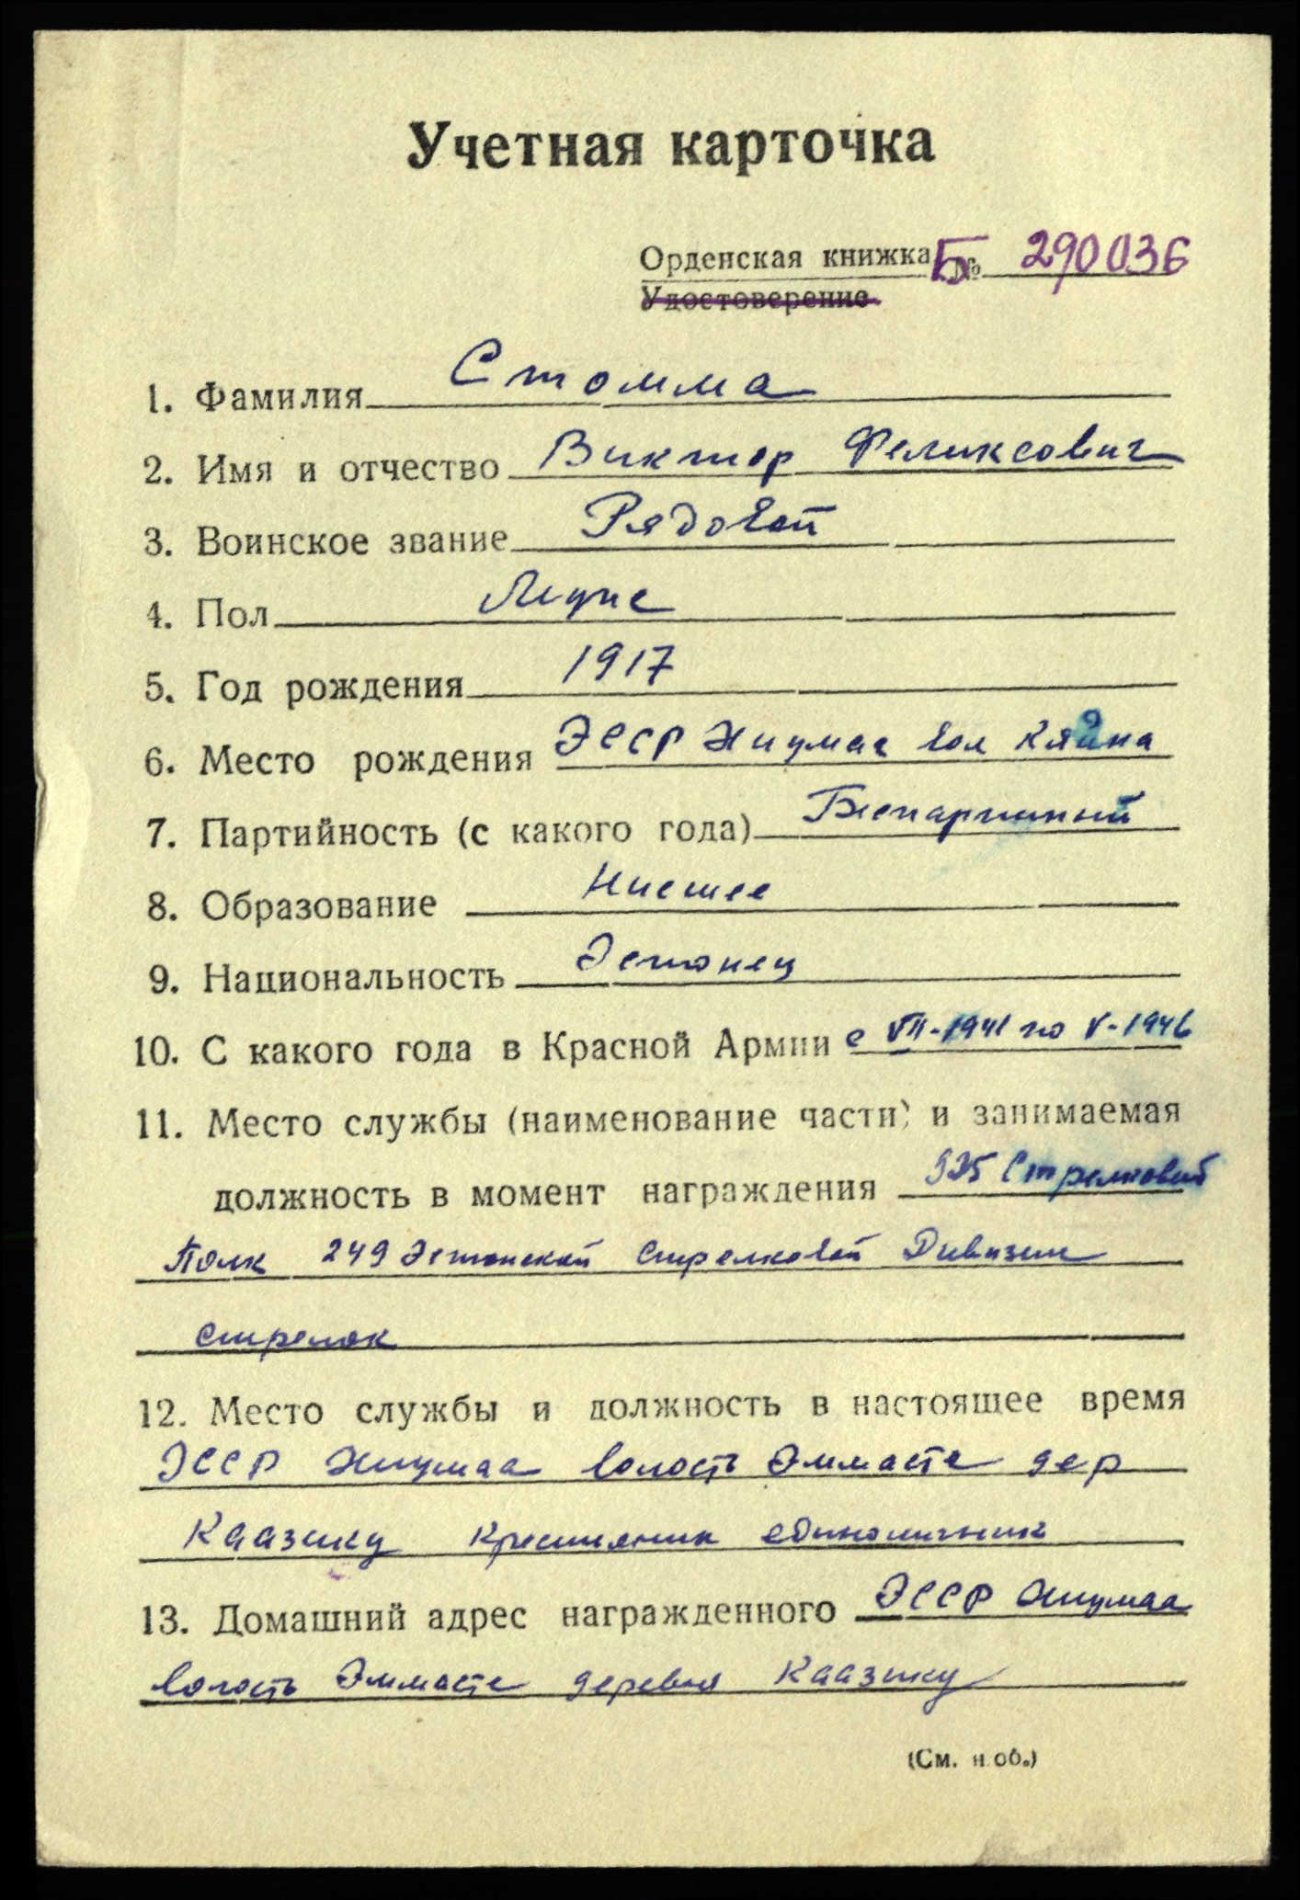 Учетная карточка
Орденская книжка Б № 290036
Удостоверение
1. Фамилия Стомма
2. Имя и отчество Виктор Феликсович
3. Воинское звание Рядовой
4. Пол Мужс
5. Год рождения 1917
6. Место рождения ЭССР Хиумаа вол Кяйна
7. Партийность (с какого года) Беспартийный
8. Образование Нисшее
9. Национальность Эстонец
10. С какого года в Красной Армии с VII-1941 по V-1946
11. Место службы (наименование части) и занимаемая
должность в момент награждения 925 Стрелковый
Полк 249 Эстонской Стрелковой Дивизии
стрелок
12. Место службы и должность в настоящее время
ЭССР Хиумаа волость Эммасте дер
Каазику Крестьянин единоличник
13. Домашний адрес награжденного ЭССР Хиумаа
волость Эммасте деревня Каазику
(См. н об.)